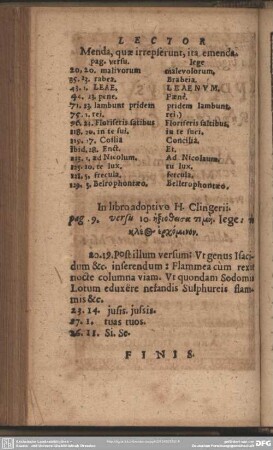 LECTOR
Menda, quæ irrepserunt, ita emenda.
pag. versu. lege
20, 20. malivorum malevolorum,
35. 13. rabea. Brabeia.
43. 1. LEAE. LEAENUM,
42. 13. pene. Pœne.
71. 23. lambunt pridem pridem lambunt,
75. 1. rei. rei.)
96. 21. Floriferis satibus Floriferis saltibus,
118. 20. in te sui. in te furi.
119. 17. Cotilia Concilia.
Ibid, 18. Enct. Et.
215. 1. ad Nicolum. Ad Nicolaum,
225. 10. te lux. tu lux.
211. 3. frecula. fercula.
229. 3. Belrophontæo. Bellerophontæo,
In libro adoptivo H. Clingerii.
pag. 9, versu 10. τιμῆς. lege: ἡ
20. 19. Post illum versum: Ut genus Isacidum &c. inserendum: Flammea cum rexit
nocte columna viam. Ut quondam Sodomis
Lotum eduxêre nefandis Sulphureis flammis &c.
23. 14. jusis. jussis.
27. 1. tuas tuos.
26. 11. Si. Se.
FINIS.
DFG